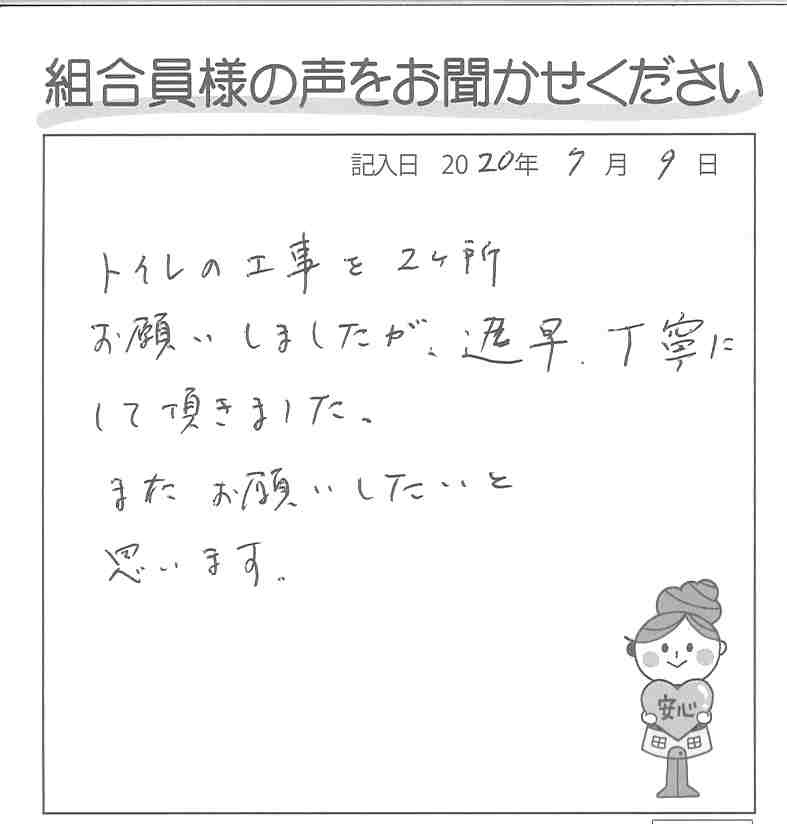 組合員様の声をお聞かせください
記入日 2020年 7月 9日
トイレの工事を2ヶ所
お願いしましたが、迅早、丁寧に
して頂きました。
またお願いしたいと
思います。
安心